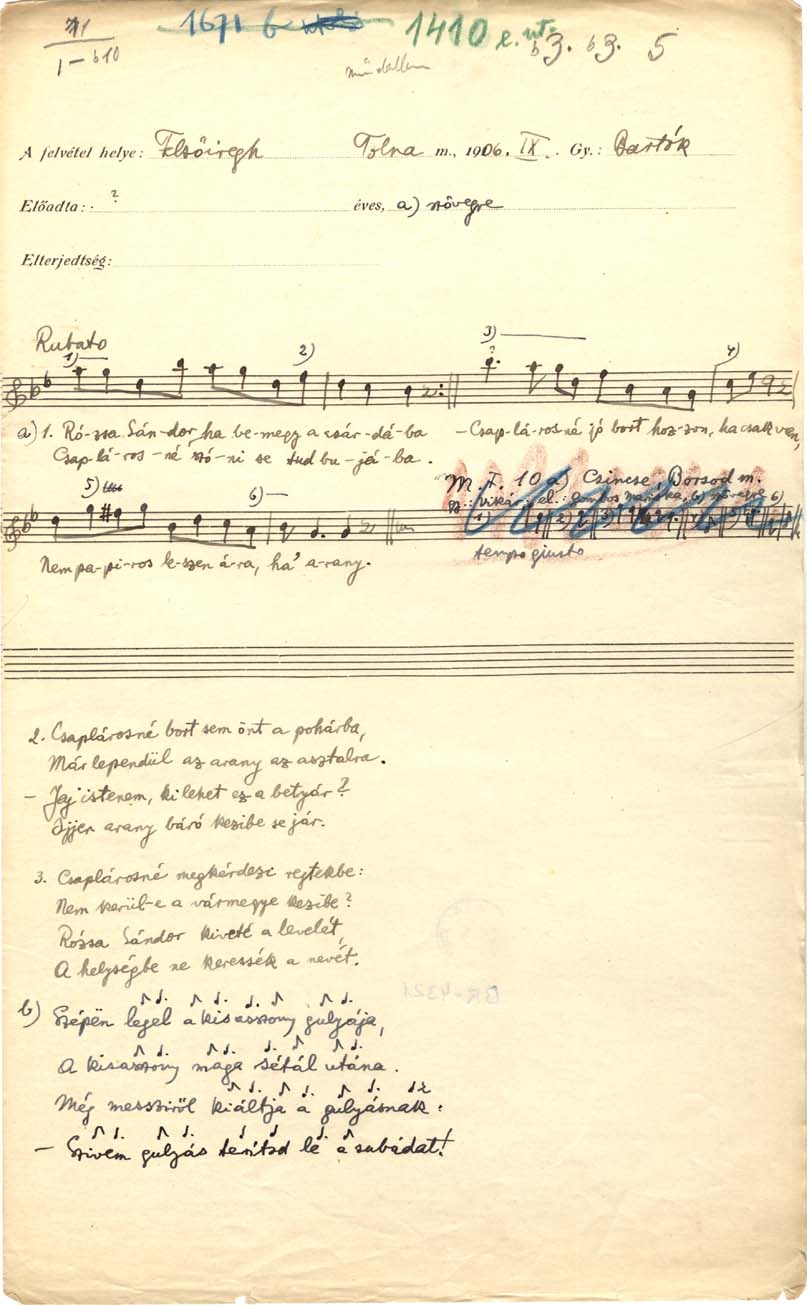 1671 b
1410 e. ut.
b3. b3. 5
I – b10
A felvétel helye: Felsőiregh Tolna m., 1906. IX. Gy.: Bartók
Előadta: ? éves, a) szövegre
Elterjedtség:
Rubato
1) 2) 3) ? 4)
a) 1. Ró-zsa Sán-dor ha be-megy a csár-dá-ba – Csap-lá-ros-né jó bort hoz-zon, ha csak van,
Csap-lá-ros-né szó-ni se tud bu-já-ba.
M. F. 10 a) Csincse, Borsod m.
5) 6)
Nem pa-pi-ros le-szen á-ra, ha' a-rany.
tempo giusto
2. Csaplárosné bort sem önt a pohárba,
Már lependül az arany az asztalra.
– Jaj istenem, ki lehet ez a betyár?
Ijjen arany báró kezibe se jár.
3. Csaplárosné megkérdezi rejtekbe:
Nem kerül-e a vármegye kezibe?
Rózsa Sándor kiveté a levelét,
A helységbe ne keressék a nevét.
BR-4321
b) Szépën legel a kisasszony gulyája,
A kisasszony maga sétál utána.
Még messziről kiáltja a gulyásnak:
– Szivem gulyás terítsd le a subádat!